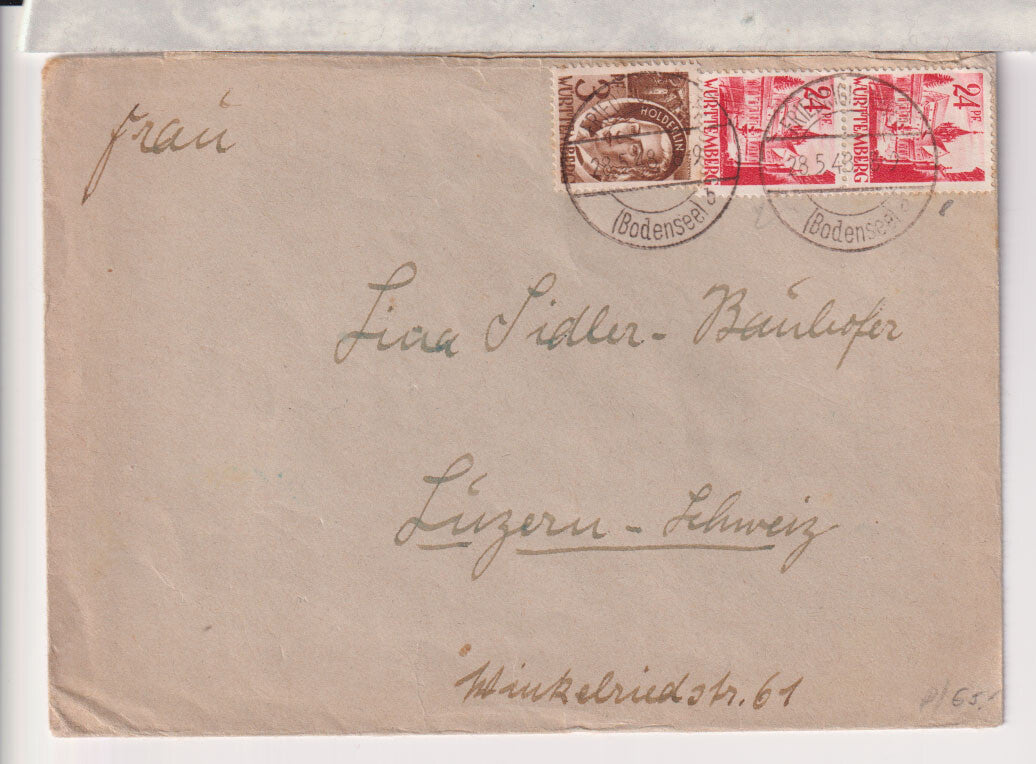 Frau
3 PF
WÜRTTEMBERG
HÖLDERLIN
24 PF
WÜRTTEMBERG
24 PF
WÜRTTEMBERG
28.5.48
(Bodensee) b
28.5.48
(Bodensee)
Lina Sidler - Bäuhofer
Lüzern - Schweiz
Winkelriedstr. 61